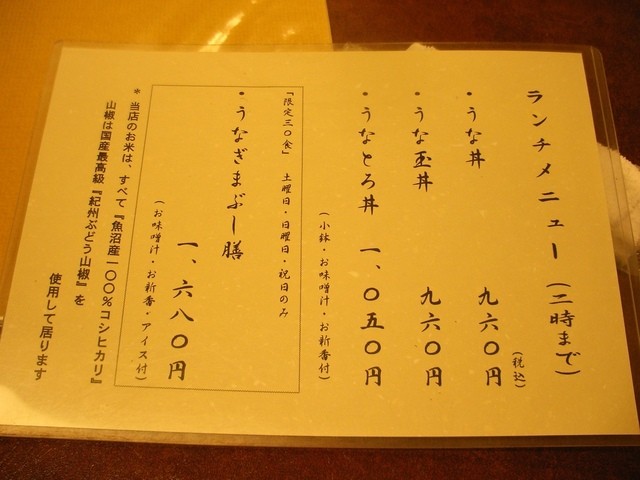 ランチメニュー(二時まで)
(税込)
・うな丼 九六〇円
・うな玉丼 九六〇円
・うなとろ丼 一、〇五〇円
(小鉢・お味噌汁・お新香付)
「限定三〇食」 土曜日・日曜日・祝日のみ
・うなぎまぶし膳
一、六八〇円
(お味噌汁・お新香・アイス付)
* 当店のお米は、すべて『魚沼産一〇〇%コシヒカリ』
山椒は国産最高級『紀州ぶどう山椒』を
使用して居ります